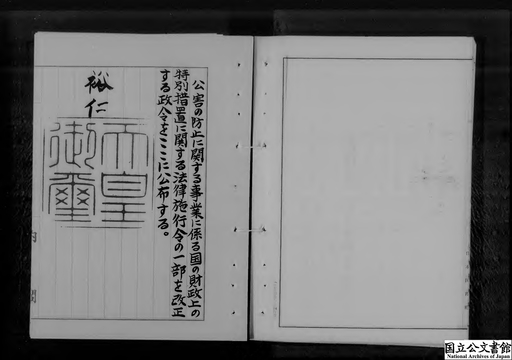 公害の防止に関する事業に係る国の財政上の
特別措置に関する法律施行令の一部を改正
する政令をここに公布する。
裕仁
天皇御璽
内閣
国立公文書館
National Archives of Japan